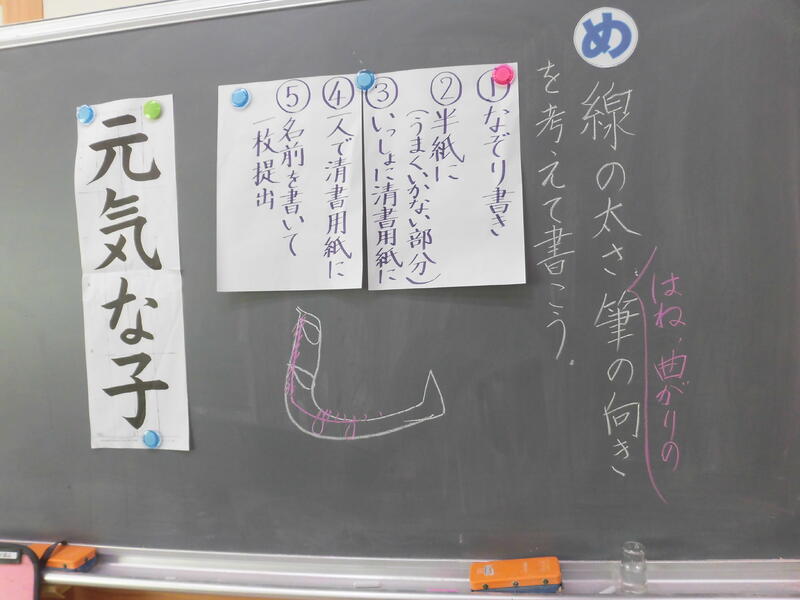 め
線の太さ、筆の向き
を考えて書こう。
はね、曲がりの
①なぞり書き
②半紙に
(うまくいかない部分)
③いっしょに清書用紙に
④一人で清書用紙に
⑤名前を書いて
一枚提出
元気な子